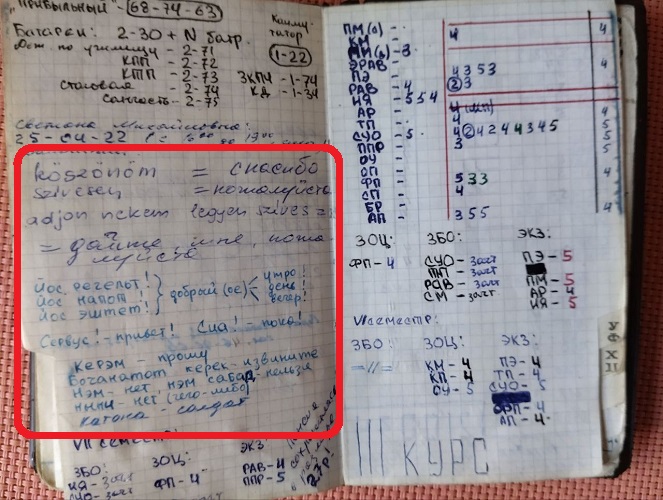 "ПРИБЫЛЬНЫЙ" - 68-74-63
Батареи: 2-30 + N батр.
Комму-
татор
1-22
Деж. по училищу - 2-71
КПП - 2-72
КТП - 2-73
ЗКПЧ - 1-74
столовая - 2-74
КД - 1-34
Санчасть - 2-75
Светлана Михайловна:
25-04-22
köszönöm = спасибо
szivesen = пожалуйста
adjon nekem legyen szives =
= дайте мне, пожа-
луйста
Йос регелот!
Йос напот!
Йос эштет!
добрый (ое)
утро!
день!
вечер!
Сервус! - привет! Сиа! - пока!
Керэм - прошу
Бочанатот керек - извините
Нэм - нет, нэм сабад - нельзя
нинч - нет (чего-либо)
катона - солдат
VII семестр:
ЗБО: ЗОЦ: ЭКЗ
ФП - 4
РАВ - 4
ППР - 5
ПМ(о) - 4 4
КМ -
ММ(в) - 3
ЭРАВ - 4 3 5 3 4
ПЭ -
РАВ - 4 2 3
ИЯ - 5 5 4
АР - 4
ТП -
СУО - 5 4 2 4 2 4 4 3 4 5 4
ППР - 3
ОУ -
ОП -
ФП - 5 3 3 4
СП - 4
БР -
АП - 3 5 5 4
ЗОЦ: ЗБО: ЭКЗ:
ФП - 4
СУО - зачт
ПНП - зачт
РАВ - зачт
СМ - зачт
ПЭ - 5
ПМ - 5
АР - 4
ИЯ - 5
VI семестр:
ЗБО: ЗОЦ: ЭКЗ:
= // =
КМ - 4
КП - 4
ОУ - 5
ПЭ - 4
ТП - 4
СУО - 5
ФРП - 4
АП - 4
III КУРС